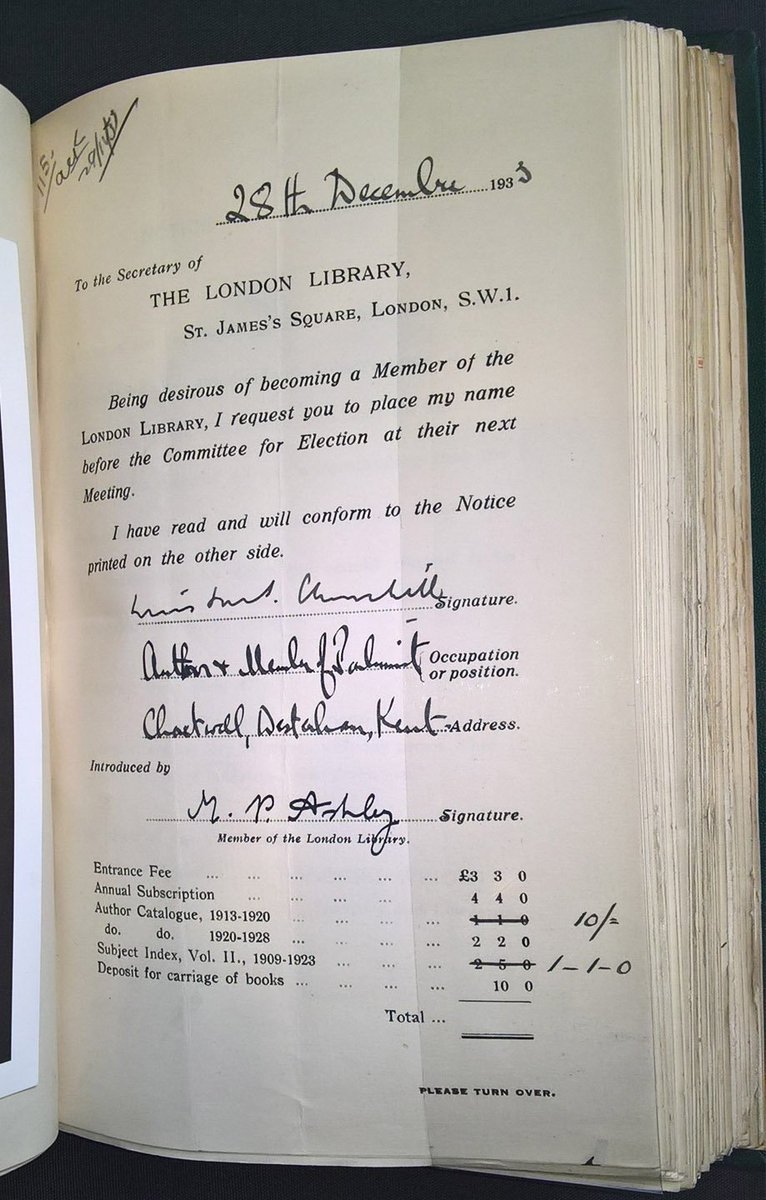 28th Decembre 1933
To the Secretary of
THE LONDON LIBRARY,
ST. JAMES'S SQUARE, LONDON, S.W.1.
Being desirous of becoming a Member of the
LONDON LIBRARY, I request you to place my name
before the Committee for Election at their next
Meeting.
I have read and will conform to the Notice
printed on the other side.
Winston S. Churchill Signature.
Author & Member of Parliament Occupation
or position.
Chartwell, Westerham, Kent Address.
Introduced by
M. P. Ashley Signature.
Member of the London Library.
Entrance Fee ... ... ... ... ... ... £3 3 0
Annual Subscription ... ... ... ... ... 4 4 0
Author Catalogue, 1913-1920 ... ... ... ... 1 1 0 10/=
do. do. 1920-1928 ... ... ... ... 2 2 0
Subject Index, Vol. II., 1909-1923 ... ... ... 2 5 0 1-1-0
Deposit for carriage of books ... ... ... ... 10 0
Total ...
PLEASE TURN OVER.